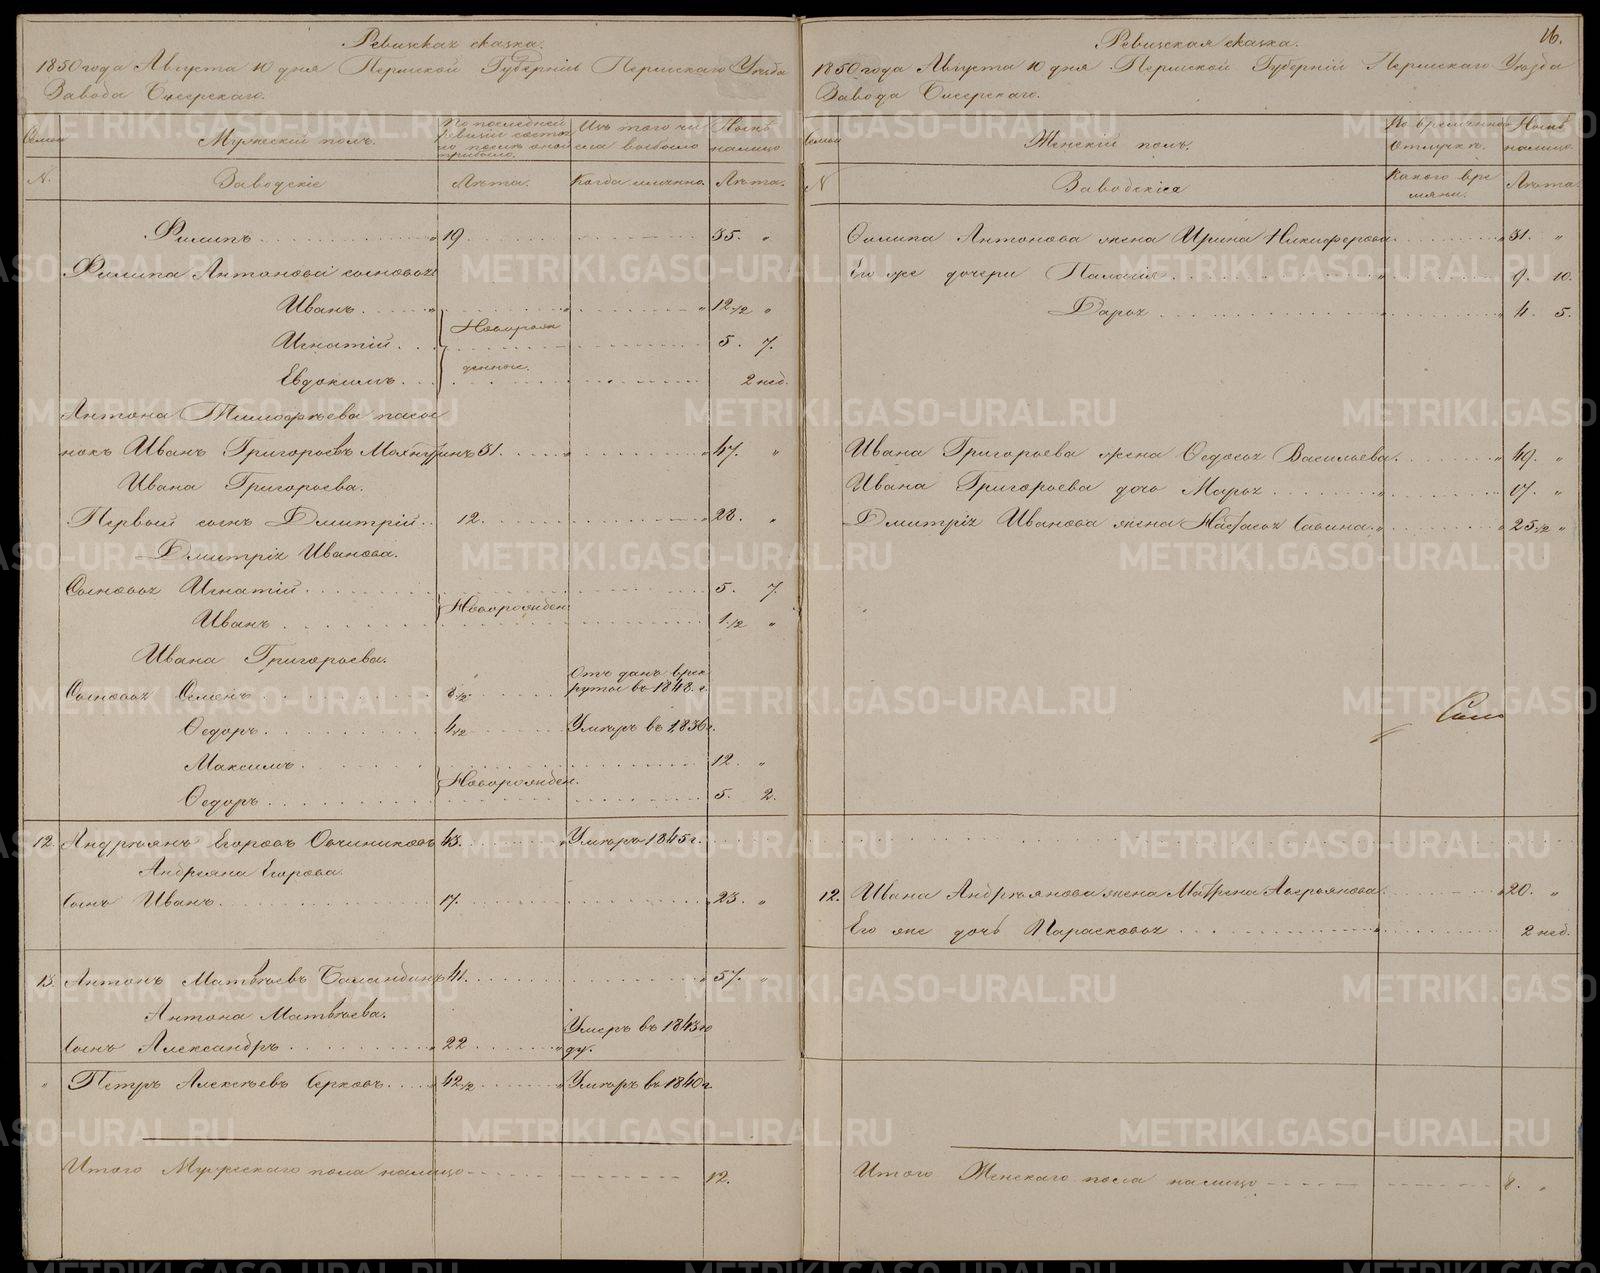 Ревизская сказка.
1850 года Августа 10 дня Пермской Губернiи Пермскаго Уѣзда
Завода Сысерскаго.
Семьи
Мужескiй полъ.
По последней ревизiи состояло и после оной прибыло.
Изъ того числа выбыло
Нынѣ налицо
N.
Заводскiе
Лѣта.
Когда имянно.
Лѣта.
Филипъ 19. 35. "
Филипа Антонова сыновья
Иванъ 12 1/2 "
Новорож
Игнатiй 5. 7.
денные.
Евдокимъ 2 нед.
Антона Тимофѣева пасы
нокъ Иванъ Григорьевъ 31. 47. "
Ивана Григорьева.
Первый сынъ Дмитрiй 12. 28. "
Дмитрiя Иванова.
Сыновья Игнатiй 5. 7.
Новорожден.
Иванъ 1 1/2 "
Ивана Григорьева.
Отданъ врек
Сыновья Семенъ 8 1/2 руты въ 1848. г.
Федоръ 4 1/2 Умеръ въ 1836 г.
Максимъ 12. "
Новорожден.
Федоръ 5. 2.
12. Андреянъ Егоровъ Овчиниковъ 43. Умеръ 1845 г.
Андреяна Егорова.
Сынъ Иванъ 17. 23. "
13. Антонъ Матвѣевъ Баландинъ 41. 57. "
Антона Матвѣева.
Умеръ въ 1843 го
Сынъ Александръ 22 ду.
" Петръ Алексѣевъ Серковъ 42 1/2 Умеръ въ 1840 г.
Итого Мужескаго пола налицо 12.
16.
Ревизская сказка.
1850 года Августа 10 дня Пермской Губернiи Пермскаго Уѣзда
Завода Сысерскаго.
Семьи
Женскiй полъ.
Во временной отлучкѣ.
Нынѣ налицо.
N
Заводскiея
Какого вре
мяни.
Лѣта.
Филипа Антонова жена Ирина Никиферова 31. "
Его же дочери Палагiя 9. 10.
Дарья 4. 5.
Ивана Григорьева жена Федосья Васильева 49. "
Ивана Григорьева дочь Марья 17. "
Дмитрiя Иванова жена Настасья Савина 25 1/2 "
12. Ивана Андреянова жена Матрена Аверьянова 20. "
Его же дочь Парасковья 2 нед.
Итого Женскаго пола налицо 8. "
METRIKI.GASO-URAL.RU